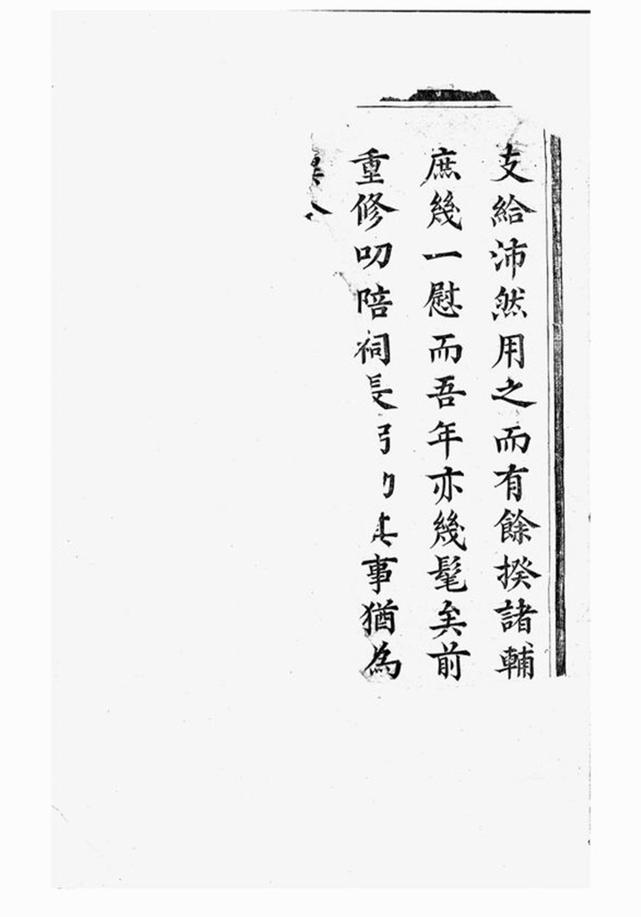 支給沛然用之而有餘揆諸輔
庶幾一慰而吾年亦幾髦矣前
重修叨陪祠長其事猶為